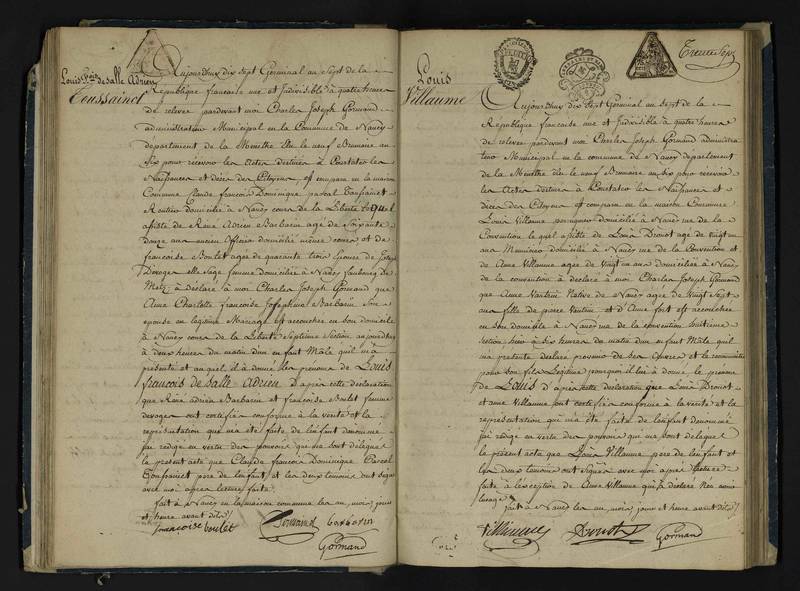 Louis fçois de salle Adrien
Toussainct
Aujourdhuy dix sept Germinal an sept de la
République francaise une et Indivisible à quatre heures
de relevée pardevant moi Charles Joseph Gormand
administrateur Municipal en la Commune de Nancy
département de la Meurthe élu le neuf Brumaire an
Six pour recevoir les actes destinés à Constater les
Naissances et décès des Citoyens est comparu en la maison
Commune Claude francois Dominique pascal Toussainct
Rentier domicilié à Nancy cours de la Liberté lequel
assisté de René Adrien Barbarin agé de Soixante
douze ans ancien officier domicilié même cours et de
francoise Boulet agée de quarante trois Epouse de Joseph
Devoger elle Sage femme domiciliée à Nancy faubourg de
Metz, à Déclaré à moi Charles Joseph Gormand que
Anne Charlotte francoise Josephine Barbarin Son
epouse en légitime Mariage est accouchée en son domicile
à Nancy cours de la Liberté Septième Section aujourdhuy
à deux heures du matin d'un enfant Mâle quil m'a
présenté et auquel il a donné les prénoms de Louis
francois de Salle Adrien d'après cette déclaration
que René adrien Barbarin et francoise Boulet femme
devoger ont certifiée conforme à la vérité et la
représentation qui m'a été faite de lenfant denommé
jai rédigé en vertu des pouvoirs qui me sont délégués
le présent acte que Claude francois Dominique Pascal
Toussainct pere de lenfant, et les deux temoins ont signé
avec moi après lecture faite.
fait à Nancy en la maison commune les an, mois, jour
et heure avant dits./
françoise boulet
barbarin
Gormand
Trente Sept
Louis
Villaume
Aujourdhuy dix sept Germinal an sept de la
République francaise une et Indivisible à quatre heures
de relevée pardevant moi Charles Joseph Gormand administra
teur Municipal en la commune de Nancy département
de la Meurthe élu le neuf Brumaire an six pour recevoir
les actes destinés à Constater les Naissances et
décès des Citoyens est comparu en la maison Commune
Louis Villaume perruquier domicilié à Nancy rue de la
Convention lequel assisté de Louis Drouot agé de vingt un
ans domicilié à Nancy rue de la Convention et
de Anne Villaume agée de vingt un ans domiciliée à Nancy
rue de la convention à déclaré à moi Charles Joseph Gormand
que Anne Vautrin Native de Nancy agée de vingt Sept
ans fille de pierre Vautrin et d'Anne est accouchée
en son domicile à Nancy rue de la convention huitieme
Section hier à Six heures du matin d'un enfant Mâle quil
m'a présenté déclaré provenir de ses œuvres et le reconnaitre
pour son fils Légitime pourquoi il lui à donné le prenom
de Louis d'après cette déclaration que Louis Drouot
et anne Villaume ont certifiée conforme à la verité et la
représentation qui m'a été faite de lenfant denommé
jai redigé en vertu des pouvoirs qui me sont delegués
le présent acte que Louis Villaume pere de lenfant et
les deux temoins ont signés avec moi après Lecture
faite à lexception de Anne Villaume qui à declaré Nen avoir
lusage
fait à Nancy les an, mois, jour et heure avant dits./
Villaume
Drouot
Gormand